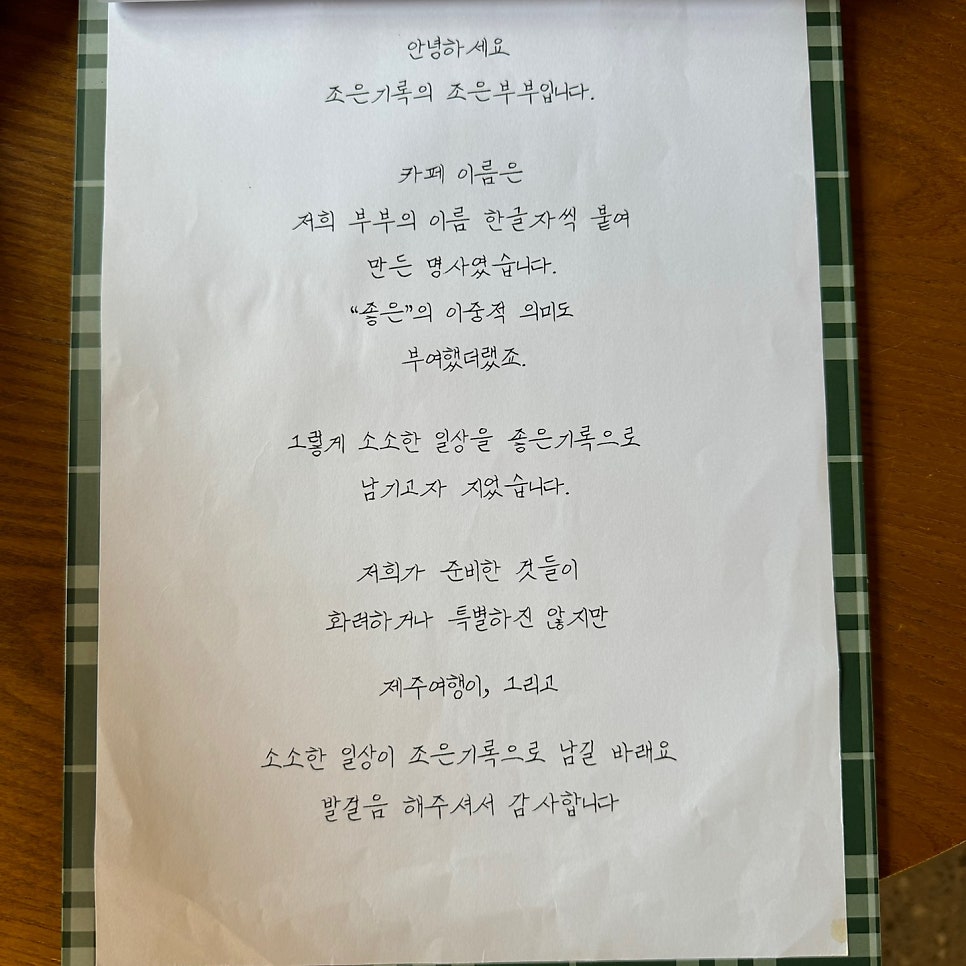 안녕하세요
조은기록의 조은부부입니다.
카페 이름은
저희 부부의 이름 한글자씩 붙여
만든 명사였습니다.
“좋은”의 이중적 의미도
부여했더랬죠.
그렇게 소소한 일상을 좋은기록으로
남기고자 지었습니다.
저희가 준비한 것들이
화려하거나 특별하진 않지만
제주여행이, 그리고
소소한 일상이 조은기록으로 남길 바래요
발걸음 해주셔서 감사합니다